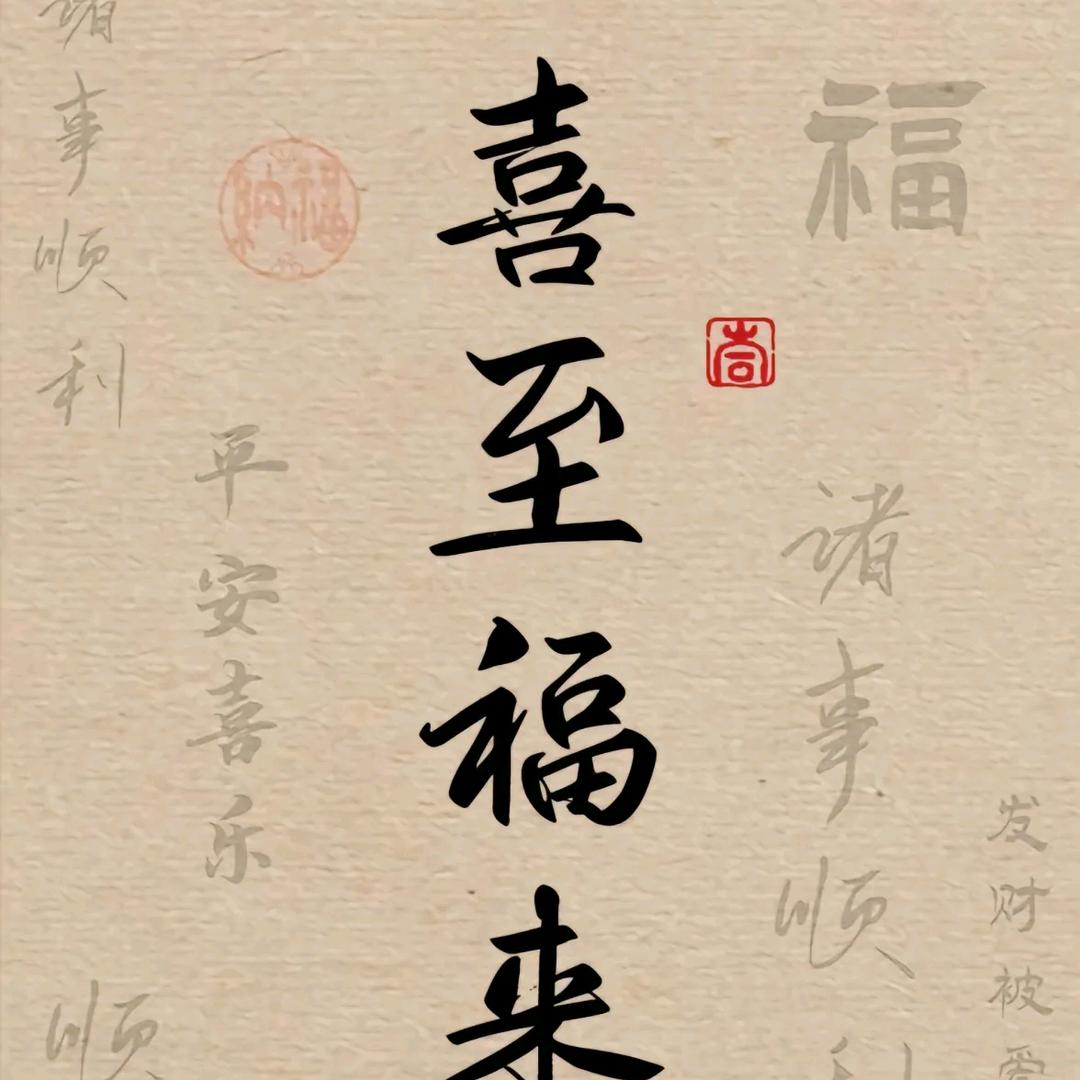 喜至福来
福
诸事顺利
发财被爱
诸事顺利
平安喜乐
顺
纳福
吉